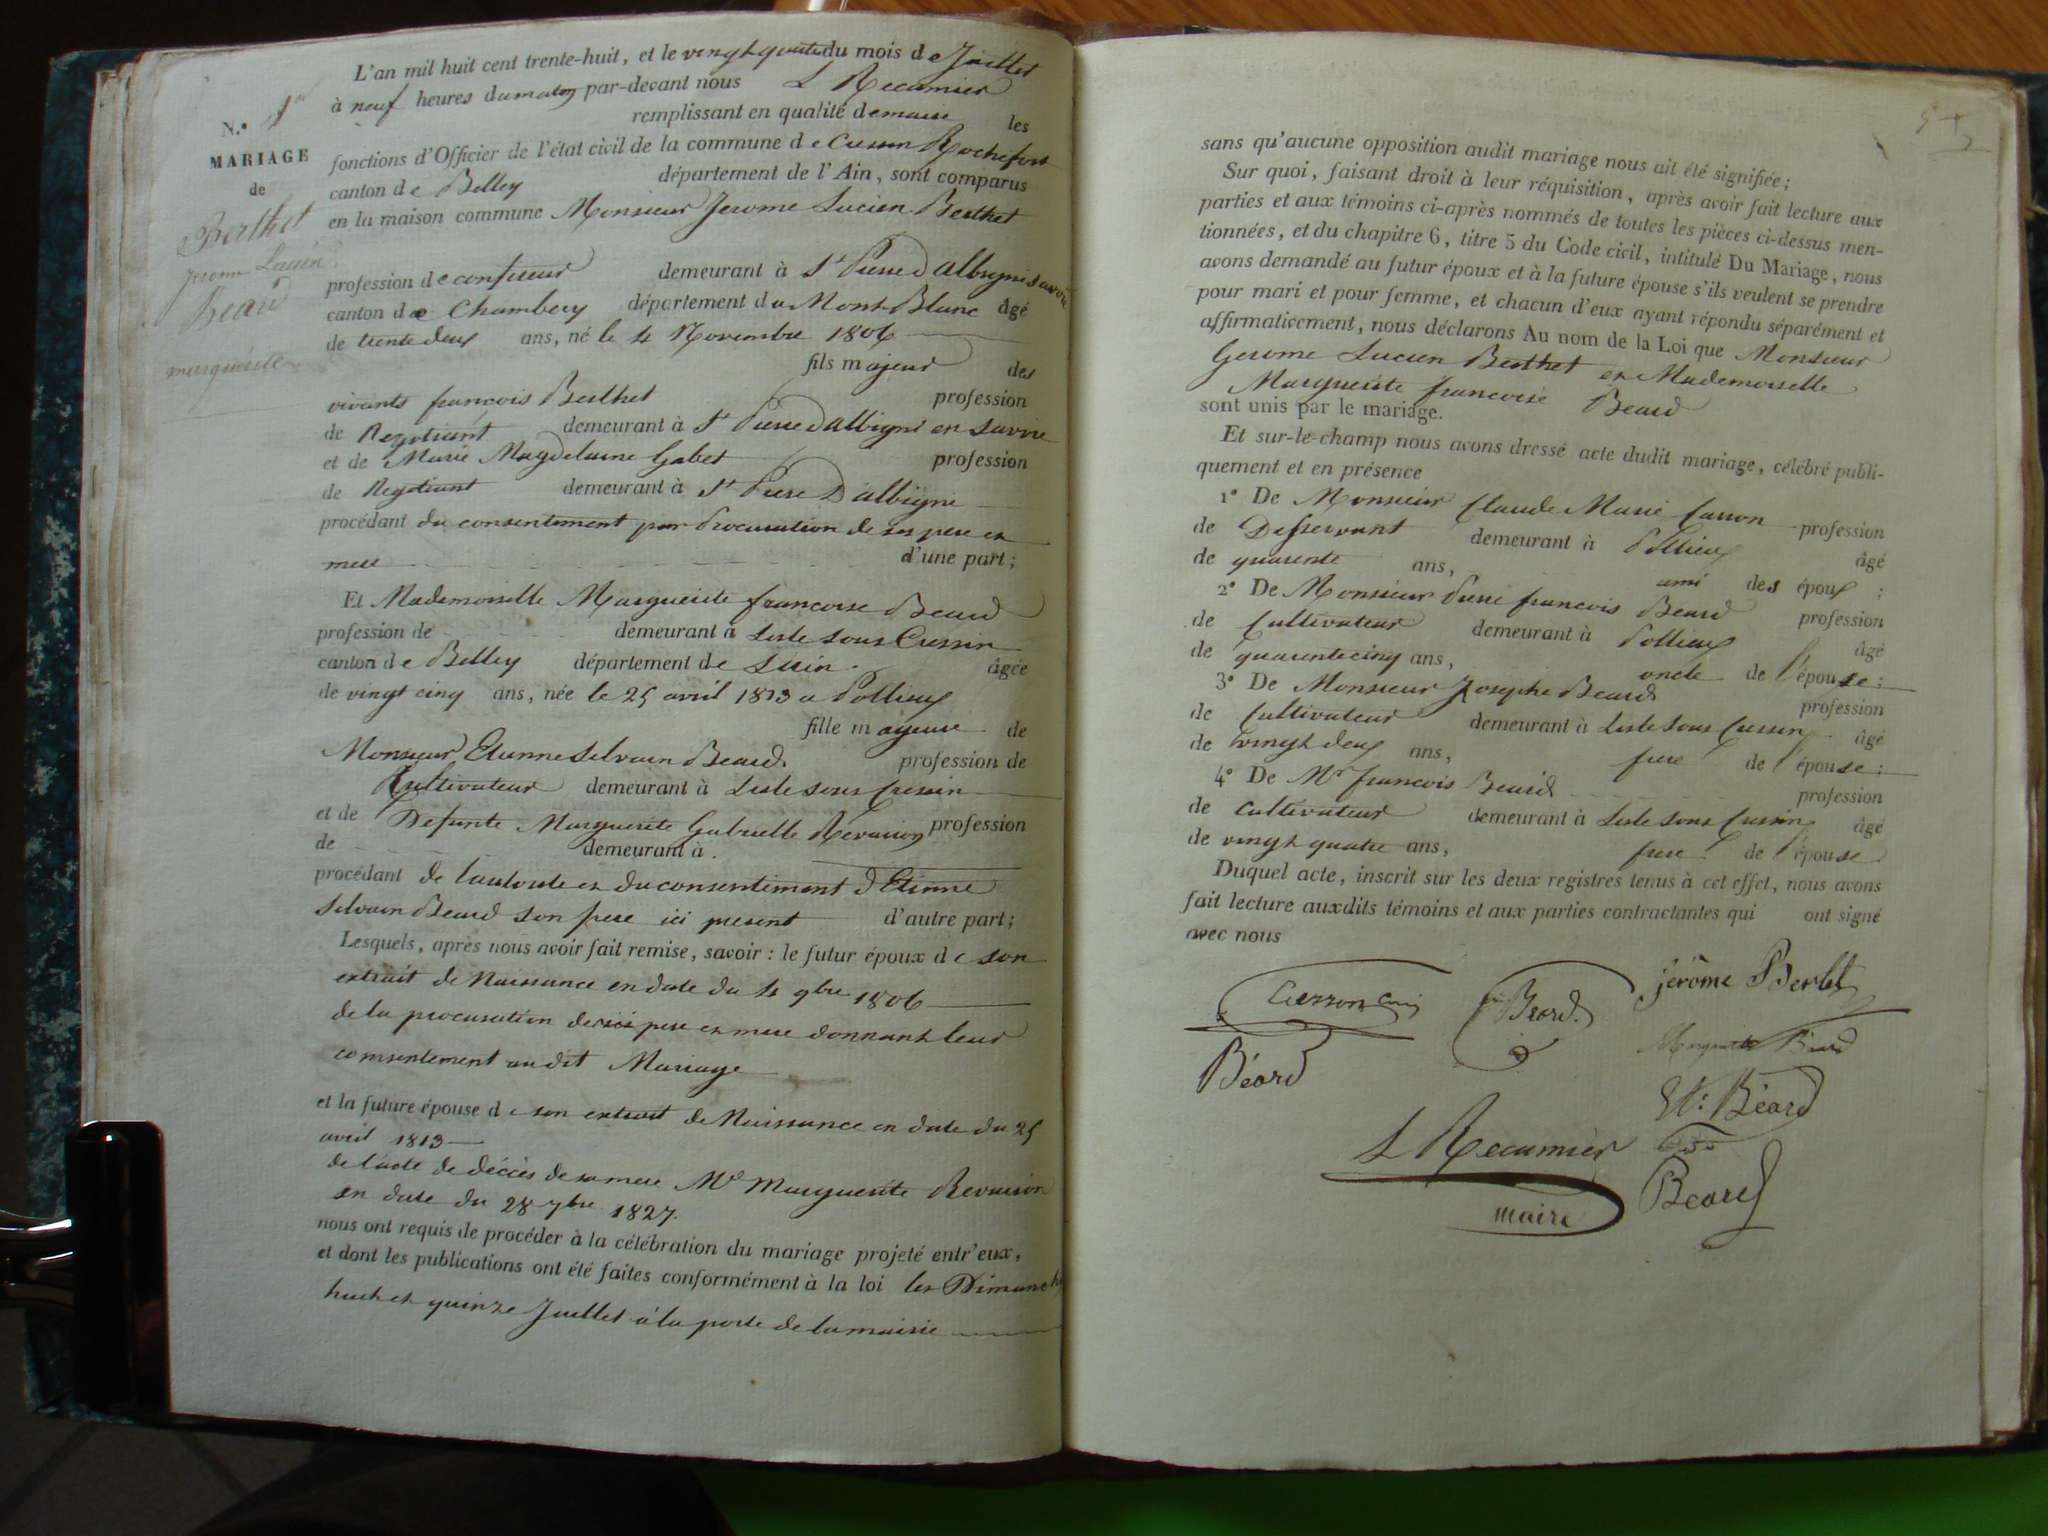 N.° 1er
MARIAGE
de
Berthet
jerome Lucien
Beard
marguerite
L'an mil huit cent trente-huit, et le vingt quatre du mois de Juillet
à neuf heures du matin par-devant nous L Recamier
remplissant en qualité de maire les
fonctions d'Officier de l'état civil de la commune de Cressin Rochefort
canton de Belley département de l'Ain, sont comparus
en la maison commune Monsieur Jerome Lucien Berthet
profession de confiseur demeurant à St Pierre D'albigni Savoie
canton de Chambery département du Mont Blanc âgé
de trente deux ans, né le 4 Novembre 1806
fils majeur des
vivants francois Berthet profession
de Negotiant demeurant à St Pierre D'albigni en Savoie
et de Marie Magdelaine Gabet profession
de Negotiant demeurant à St Piere D'albigni
procédant du consentement par Procuration de ses pere et
mere d'une part;
Et Mademoiselle Marguerite francoise Beard
profession de demeurant à Lisle sous Cressin
canton de Belley département de Lain âgée
de vingt cinq ans, née le 25 avril 1813 a Pollieux
fille majeure de
Monsieur Etienne Silvain Beard profession de
Cultivateur demeurant à Lisle sous Cressin
et de Defunte Marguerite Gabrielle Revairion profession
de demeurant à
procédant de l'autorité et du consentement d'Etienne
Silvain Beard son pere ici present d'autre part;
Lesquels, après nous avoir fait remise, savoir : le futur époux de son
extrait de Naissance en date du 4 9bre 1806
de la procuration de ses pere et mere donnant leur
consentement au dit Mariage
et la future épouse de son extrait de Naissance en date du 25
avril 1813
de l'acte de décès de sa mere Me Marguerite Revairion
en date du 28 7bre 1827.
nous ont requis de procéder à la célébration du mariage projeté entr'eux,
et dont les publications ont été faites conformément à la loi les Dimanche
huit et quinze Juillet à la porte de la mairie
sans qu'aucune opposition audit mariage nous ait été signifiée;
Sur quoi, faisant droit à leur réquisition, après avoir fait lecture aux
parties et aux témoins ci-après nommés de toutes les pièces ci-dessus men-
tionnées, et du chapitre 6, titre 5 du Code civil, intitulé Du Mariage, nous
avons demandé au futur époux et à la future épouse s'ils veulent se prendre
pour mari et pour femme, et chacun d'eux ayant répondu séparément et
affirmativement, nous déclarons Au nom de la Loi que Monsieur
Gerome Lucien Berthet et Mademoiselle
Marguerite francoise Beard
sont unis par le mariage.
Et sur-le-champ nous avons dressé acte dudit mariage, célébré publi-
quement et en présence
1° De Monsieur Claude Marie Carron profession
de Desservant demeurant à Pollieux âgé
de quarente ans, ami des époux ;
2° De Monsieur Pierre francois Beard profession
de Cultivateur demeurant à Pollieux âgé
de quarente cinq ans, oncle de l'épouse ;
3° De Monsieur Josephe Beard profession
de Cultivateur demeurant à Lisle sous Cressin âgé
de vingt deux ans, frere de l'épouse ;
4° De Mr francois Beard profession
de cultivateur demeurant à Lisle sous Cressin âgé
de vingt quatre ans, frere de l'épouse
Duquel acte, inscrit sur les deux registres tenus à cet effet, nous avons
fait lecture auxdits témoins et aux parties contractantes qui ont signé
avec nous
jérôme Berthet
Beard.
Marguerite Béard
Béard
Et. Béard
L Recamier
maire
Beard